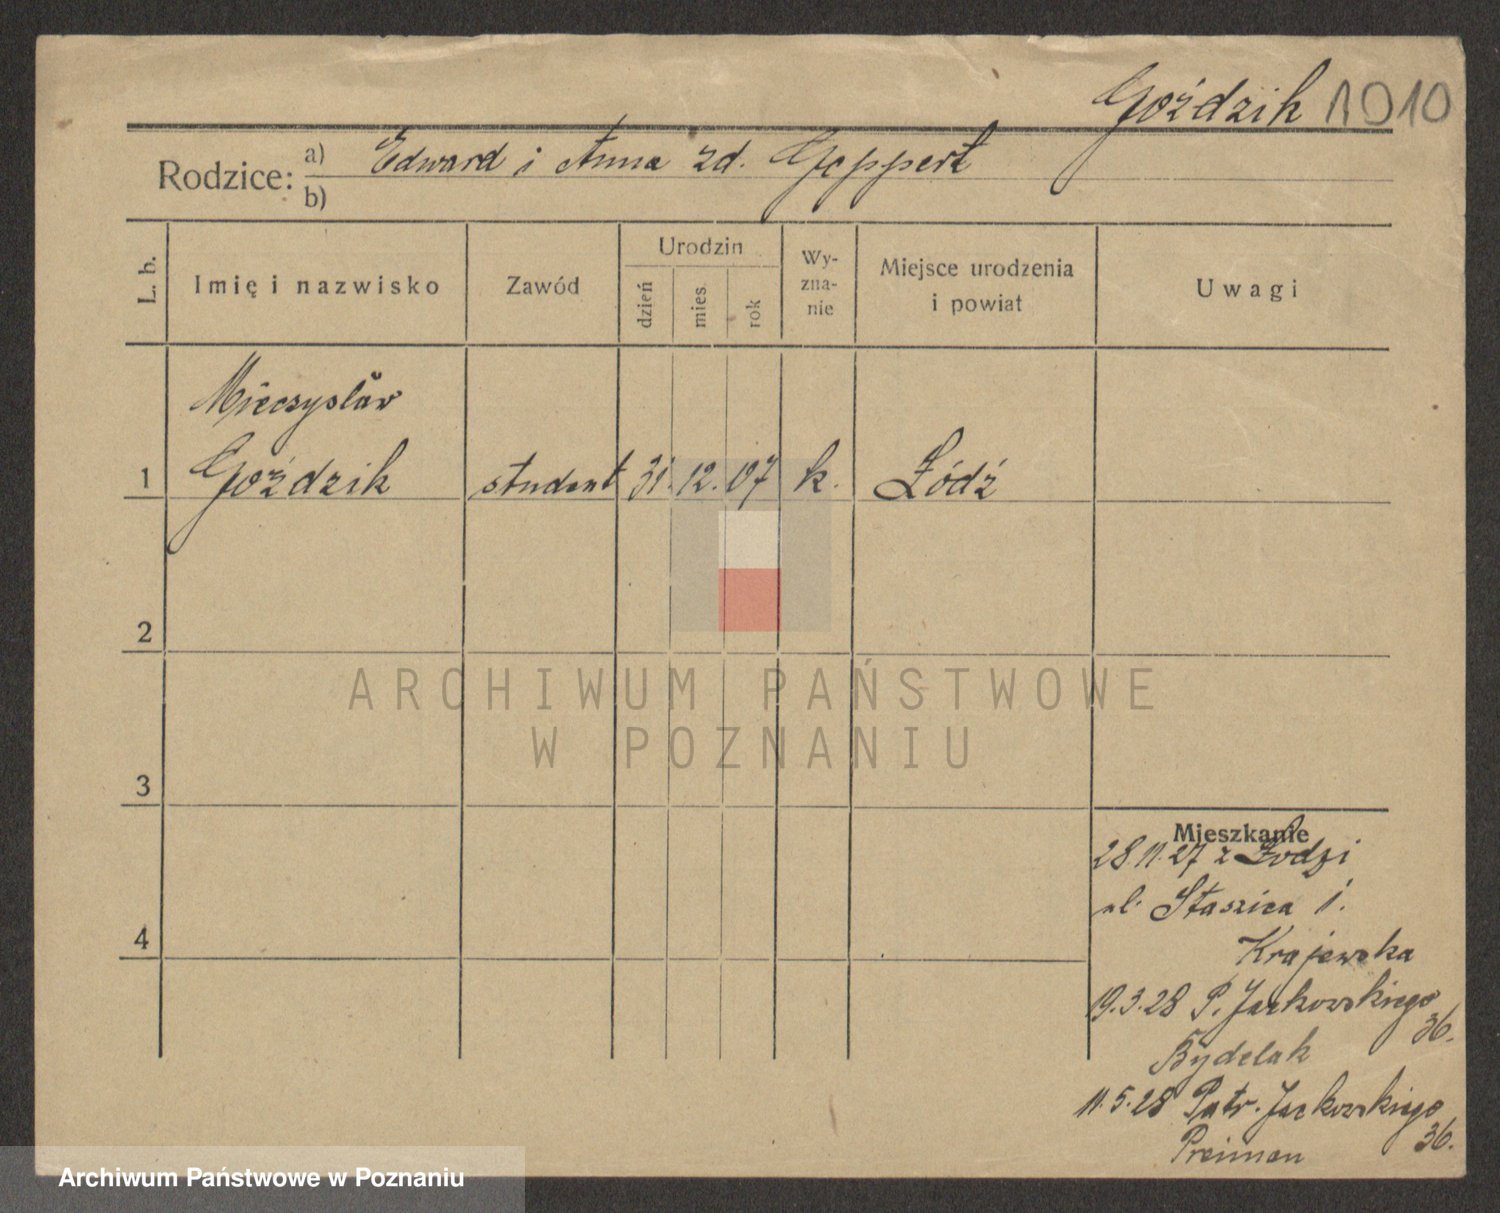 Goździk 1910
Rodzice: a) Edward i Anna zd. Geppert
b)
L. b.
Imię i nazwisko
Zawód
Urodzin
dzień
mies.
rok
Wy-
zna-
nie
Miejsce urodzenia
i powiat
Uwagi
Mieczysław
1 Goździk student 31. 12. 07 k. Łódź
2
3
4
Mieszkanie
28.11.27 z Łodzi
ul. Staszica 1.
Krajewska
19.3.28 P. Jackowskiego
36.
Bydelak
11.5.28 Patr. Jackowskiego
36.
Preiman
ARCHIWUM PAŃSTWOWE
W POZNANIU
Archiwum Państwowe w Poznaniu